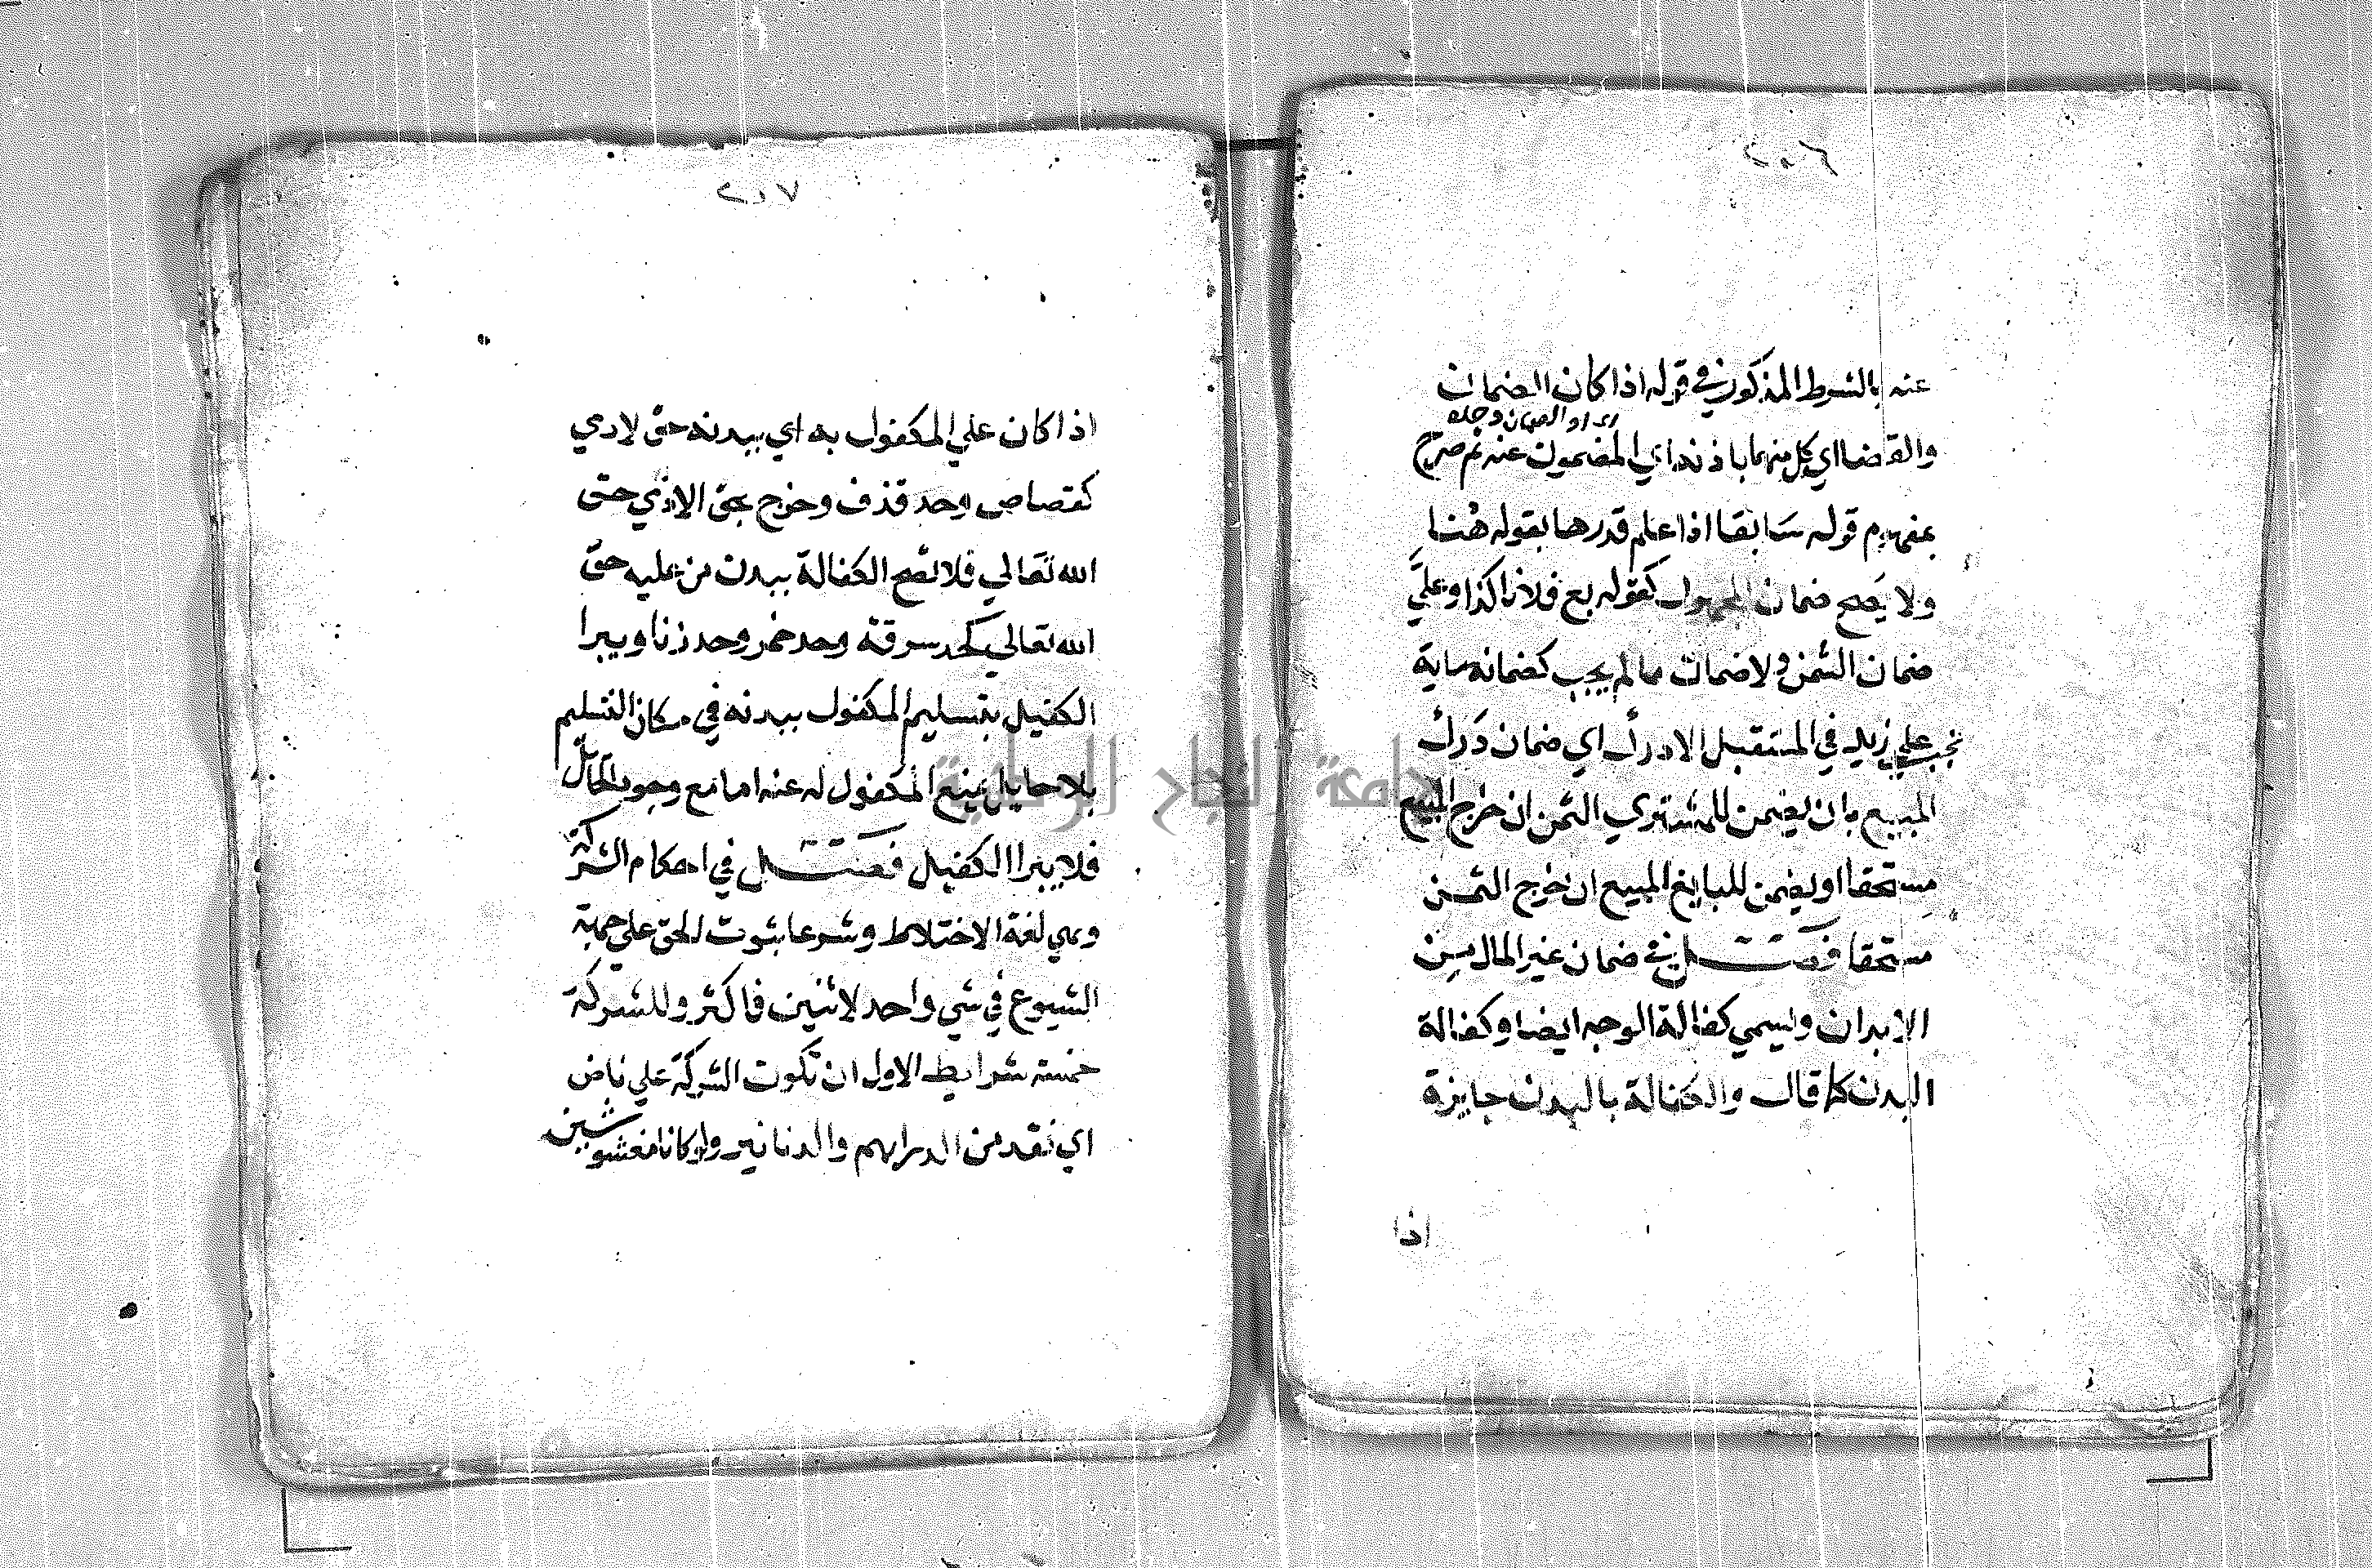 ٢٠٦
عنه بالشرط المذكور في قوله اذا كان الضمان
والقضا اي كل منهما باذنه اي المضمون عنه ثم صرح
بمفهوم قوله سابقا اذا علم قدرها بقوله هنا
ولا يصح ضمان المجهول كقوله بع فلانا كذا وعليَّ
ضمان الثمن ولا ضمان ما لم يجب كضمانه ماية
تجب علي زيد في المستقبل الا درك اي ضمان دَرَك
المبيع بان يضمن للمشتري الثمن ان خرج المبيع
مستحقا او يضمن للبايع المبيع ان خرج الثمن
مستحقا فصل في ضمان غير المال من
الابدان ويسمي كفالة الوجه ايضا وكفالة
البدن كما قال والكفالة بالبدن جايزة
اذا
٢٠٧
اذا كان علي المكفول به اي ببدنه حق لادمي
كقصاص وحد قذف وخرج بحق الادمي حق
الله تعالي فلا تصح الكفالة ببدن من عليه حق
الله تعالي كحد سرقة وحد خمر وحد زنا ويبرا
الكفيل بتسليم المكفول ببدنه في مكان التسليم
بلا حايل يمنع المكفول له عنه اما مع وجود الحائل
فلا يبرا الكفيل فصل في احكام الشركة
وهي لغة الاختلاط وشرعا ثبوت الحق علي جهة
الشيوع في شي واحد لاثنين فاكثر وللشركة
خمسة شرايط الاول ان تكون الشركة علي ناض
اي نقد من الدراهم والدنانير ولو كانا مغشوشين
جامعة النجاح الوطنية